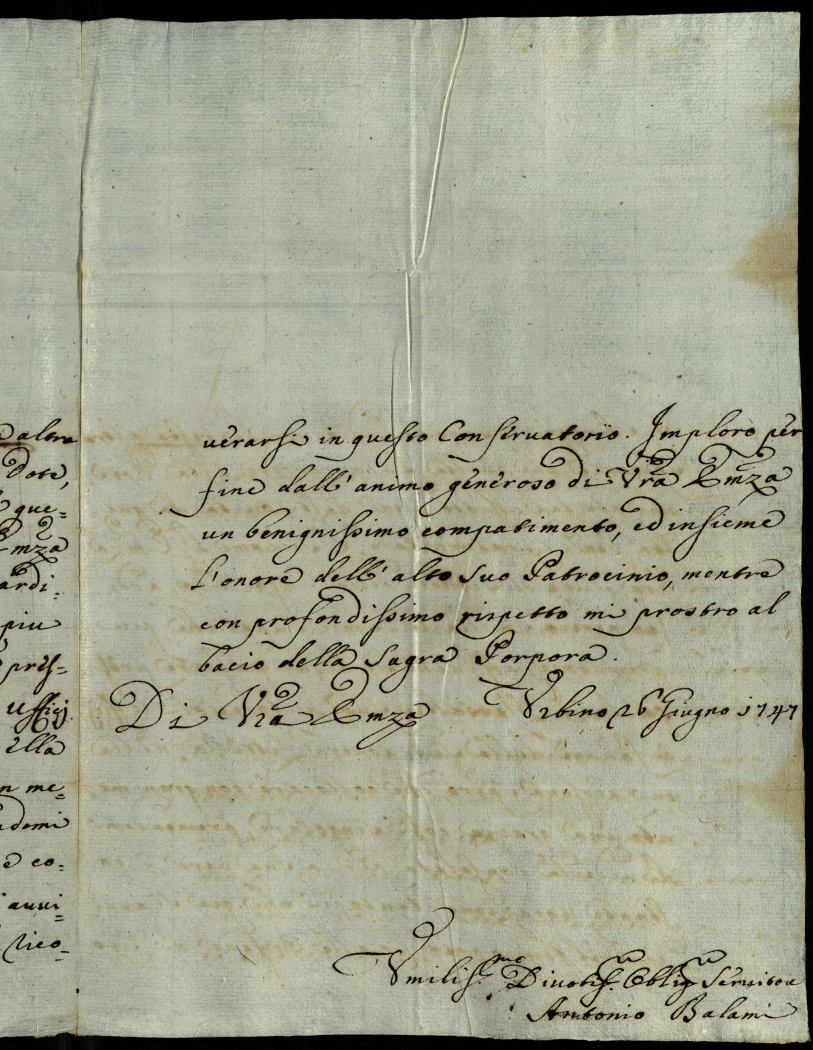 e altra
Dote,
e que=
Emza
ardi=
piu
pres=
uffizj.
ella
n me=
ndomi
e co=
auui=
rico=
uerarsi in questo Conseruatorio. Imploro per
fine dall'animo generoso di Vra Emza
un benignissimo compatimento, ed insieme
l'onore dell'alto suo Patrocinio, mentre
con profondissimo rispetto mi prostro al
bacio della Sagra Porpora.
Di Vra Emza Urbino 26 Giugno 1747
Umilis.mo Diuotis. Oblig. Seruitore
Antonio Balami